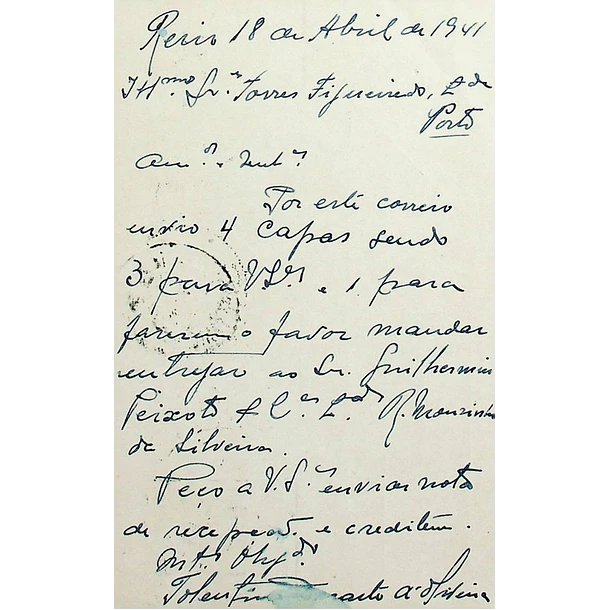 18 de Abril de 1941
Illmos Srs Torres Figueiredo, Lda
Porto
Amos e Senhrs
Por este correio
envio 4 capas sendo
3 para V.Sas e 1 para
fazerem o favor mandar
entregar ao Snr. Guilhermino
Peixoto & Ca Lda R. Mousinho
da Silveira.
Peço a V.Sas enviar nota
de recepção e creditem.
Mtos Obgdo